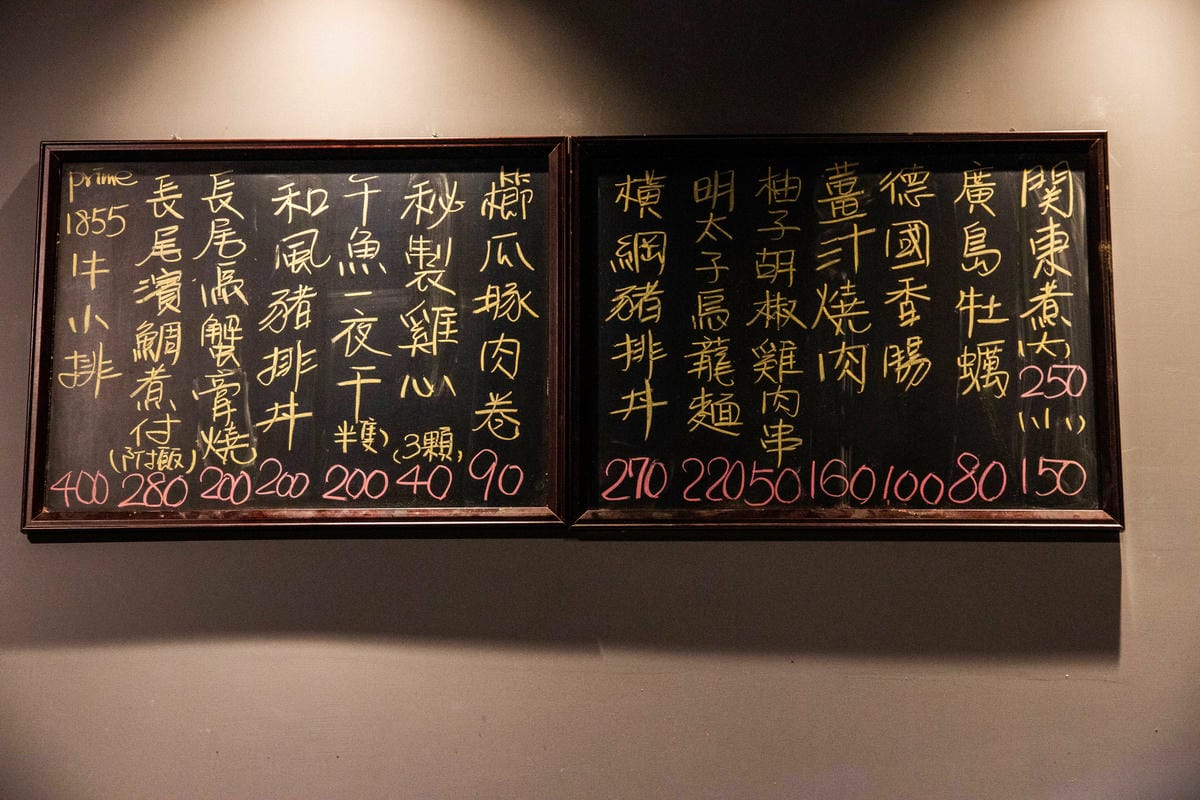 関東煮(大)250(小)150
廣島牡蠣 80
德國香腸 100
薑汁燒肉 160
柚子胡椒雞肉串 50
明太子烏龍麵 220
橫綱豬排丼 270
櫛瓜豚肉卷 90
秘製雞心(3顆) 40
午魚一夜干(半隻) 200
和風豬排丼 200
長尾蟹膏燒 200
長尾濱鯛煮付(附飯) 280
prime 1855 牛小排 400